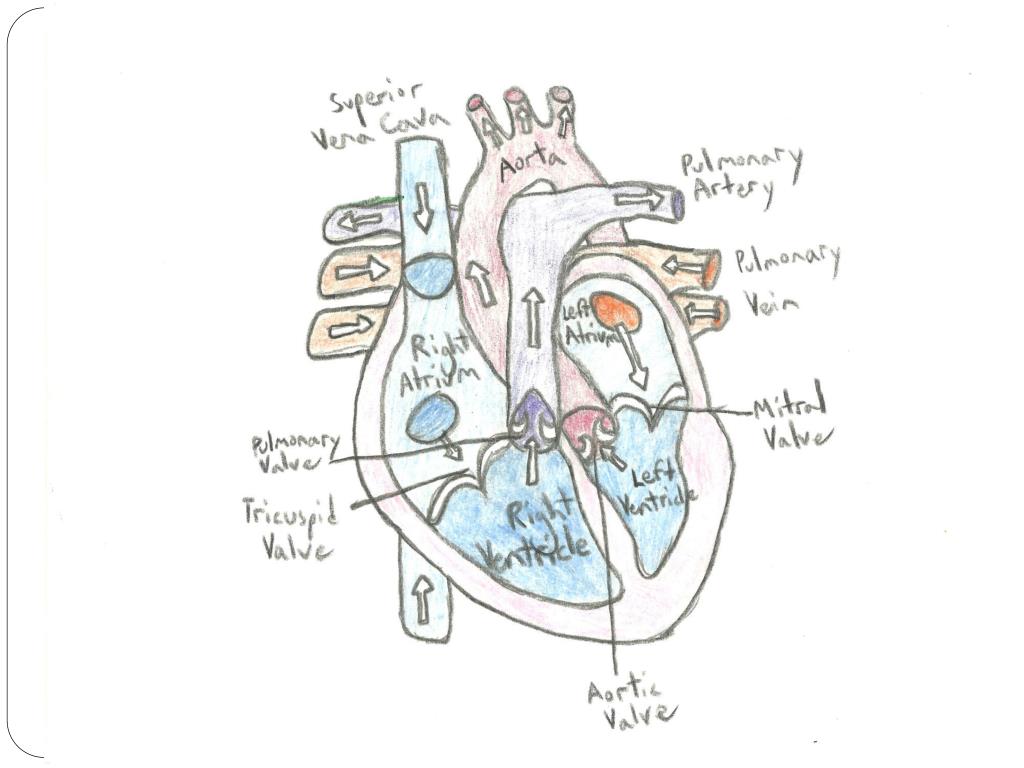 Superior
Vena Cava
Aorta
Pulmonary
Artery
Pulmonary
Vein
Left
Atrium
Right
Atrium
Mitral
Valve
Pulmonary
Valve
Left
Ventricle
Tricuspid
Valve
Right
Ventricle
Aortic
Valve